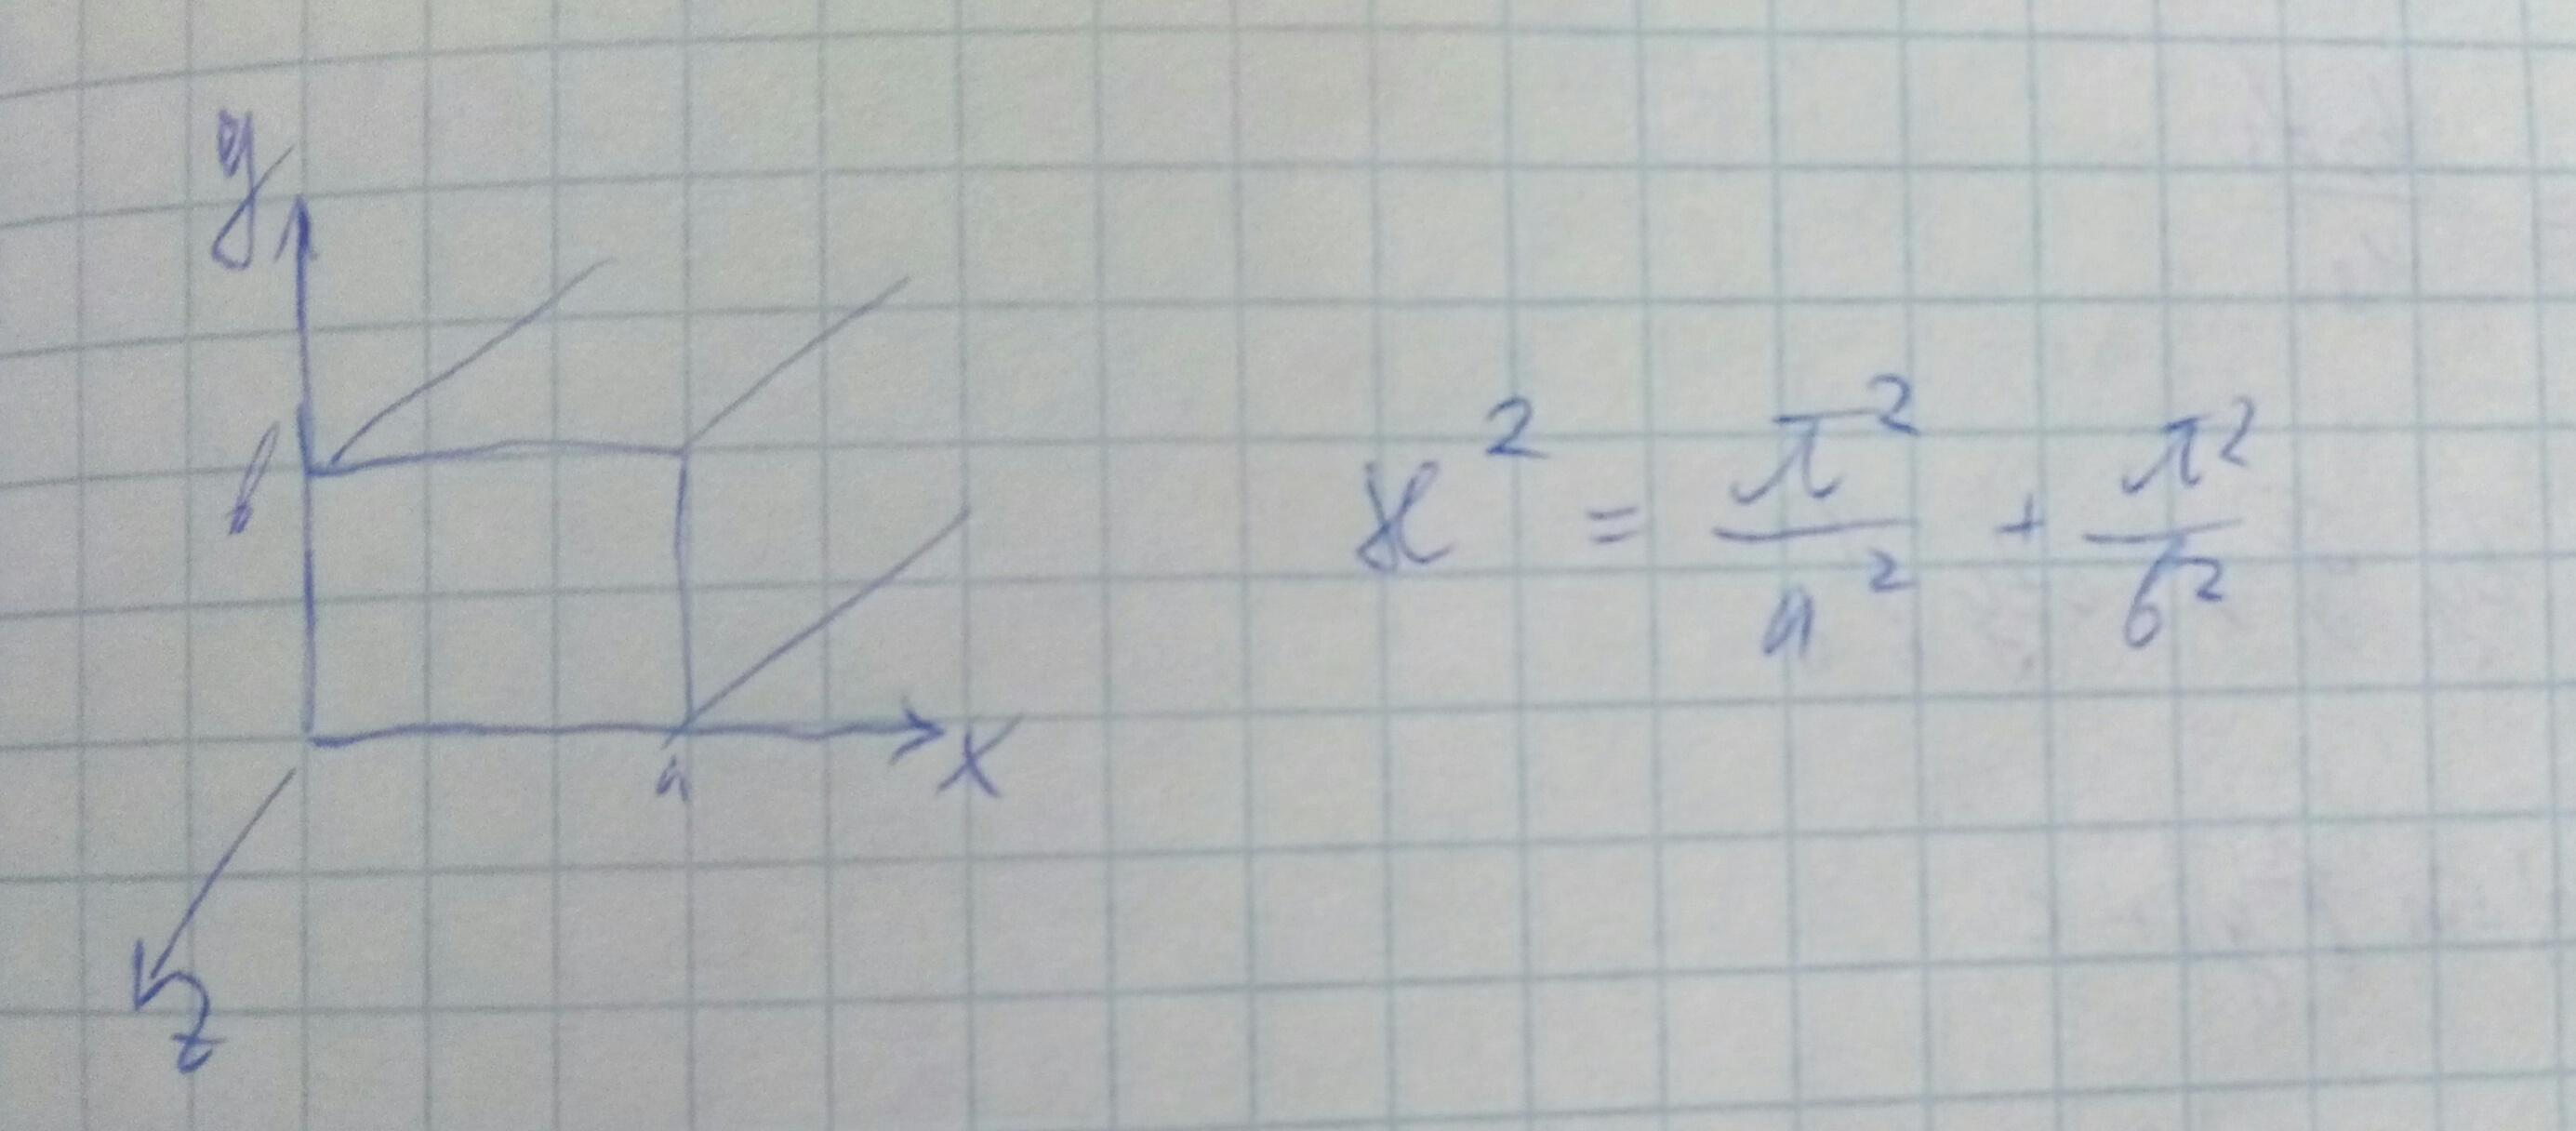 y
b
a
x
z
ϰ² = π²/a² + π²/b²